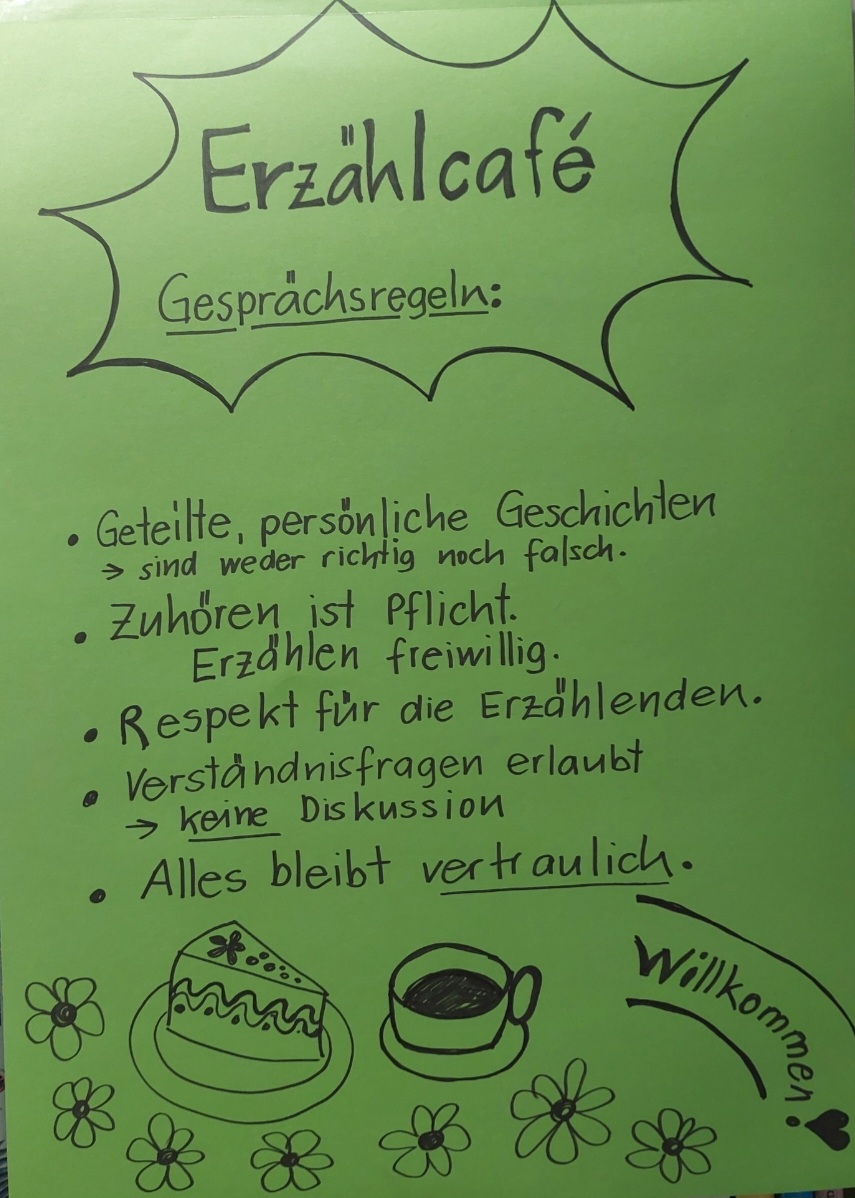 Erzählcafé
Gesprächsregeln:
• Geteilte, persönliche Geschichten
→ sind weder richtig noch falsch.
• Zuhören ist Pflicht.
Erzählen freiwillig.
• Respekt für die Erzählenden.
• Verständnisfragen erlaubt
→ keine Diskussion
• Alles bleibt vertraulich.
Willkommen!